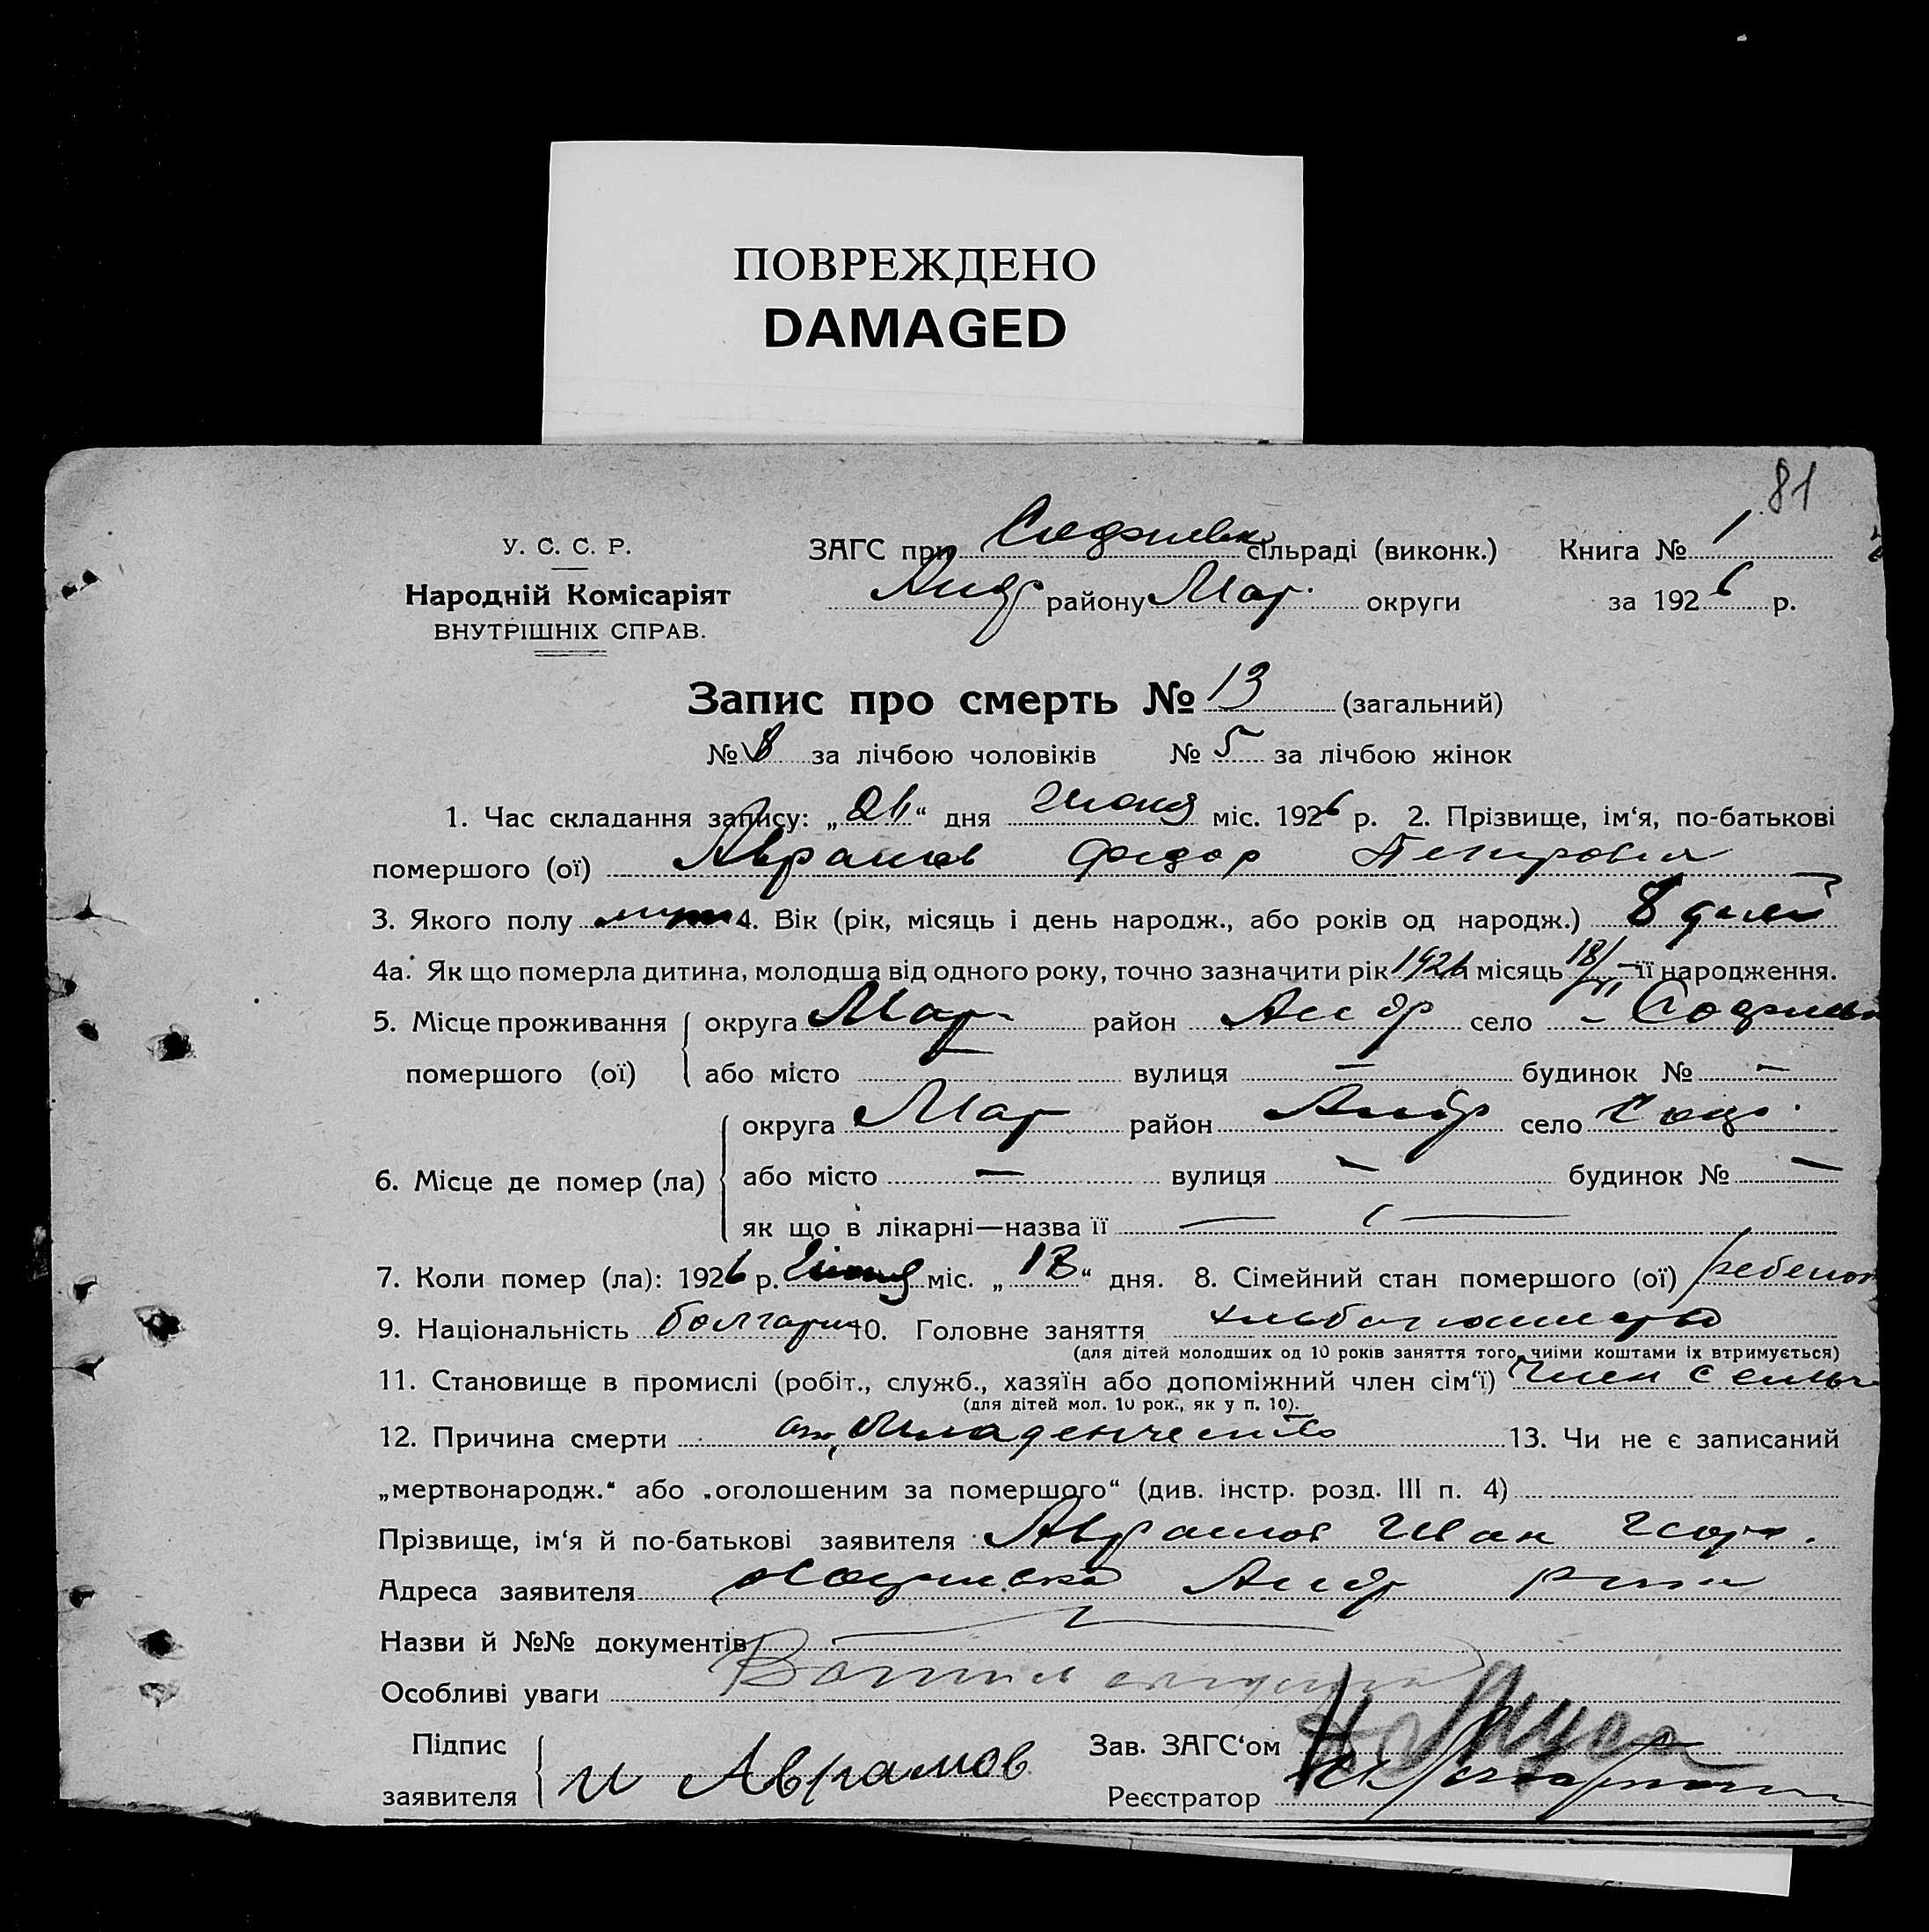 ПОВРЕЖДЕНО
DAMAGED
81
У. С. С. Р. ЗАГС при Софиевк сільраді (виконк.) Книга № 1
Народній Комісаріят Андр району Мар. округи за 1926 р.
ВНУТРІШНІХ СПРАВ.
Запис про смерть № 13 (загальний)
№ 8 за лічбою чоловіків № 5 за лічбою жінок
1. Час складання запису: „21“ дня Июня міс. 1926 р. 2. Прізвище, ім‘я, по-батькові
помершого (ої) Аврамов Федор Петрович
3. Якого полу муж 4. Вік (рік, місяць і день народж., або років од народж.) 8 дней
4а. Як що померла дитина, молодша від одного року, точно зазначити рік 1926 місяць її народження.
5. Місце проживання округа Мар. район Андр село Софиевк
помершого (ої) або місто — вулиця — будинок № —
округа Мар район Андр село Соф.
6. Місце де помер (ла) або місто — вулиця — будинок № —
як що в лікарні—назва її —
7. Коли помер (ла): 1926 р. Июня міс. „18“ дня. 8. Сімейний стан помершого (ої) ребенок
9. Національність болгарин 10. Головне заняття хлебопашество
(для дітей молодших од 10 років заняття того, чиїми коштами їх втримується)
11. Становище в промислі (робіт., служб., хазяїн або допоміжний член сім‘ї) член семьи
(для дітей мол. 10 рок., як у п. 10).
12. Причина смерти от младенчества 13. Чи не є записаний
„мертвонародж.“ або „оголошеним за помершого“ (див. інстр. розд. III п. 4)
Прізвище, ім‘я й по-батькові заявителя Аврамов Иван
Адреса заявителя Софиевка Андр р-на
Назви й №№ документів —
Особливі уваги
Підпис Зав. ЗАГС‘ом
заявителя И Аврамов Реєстратор